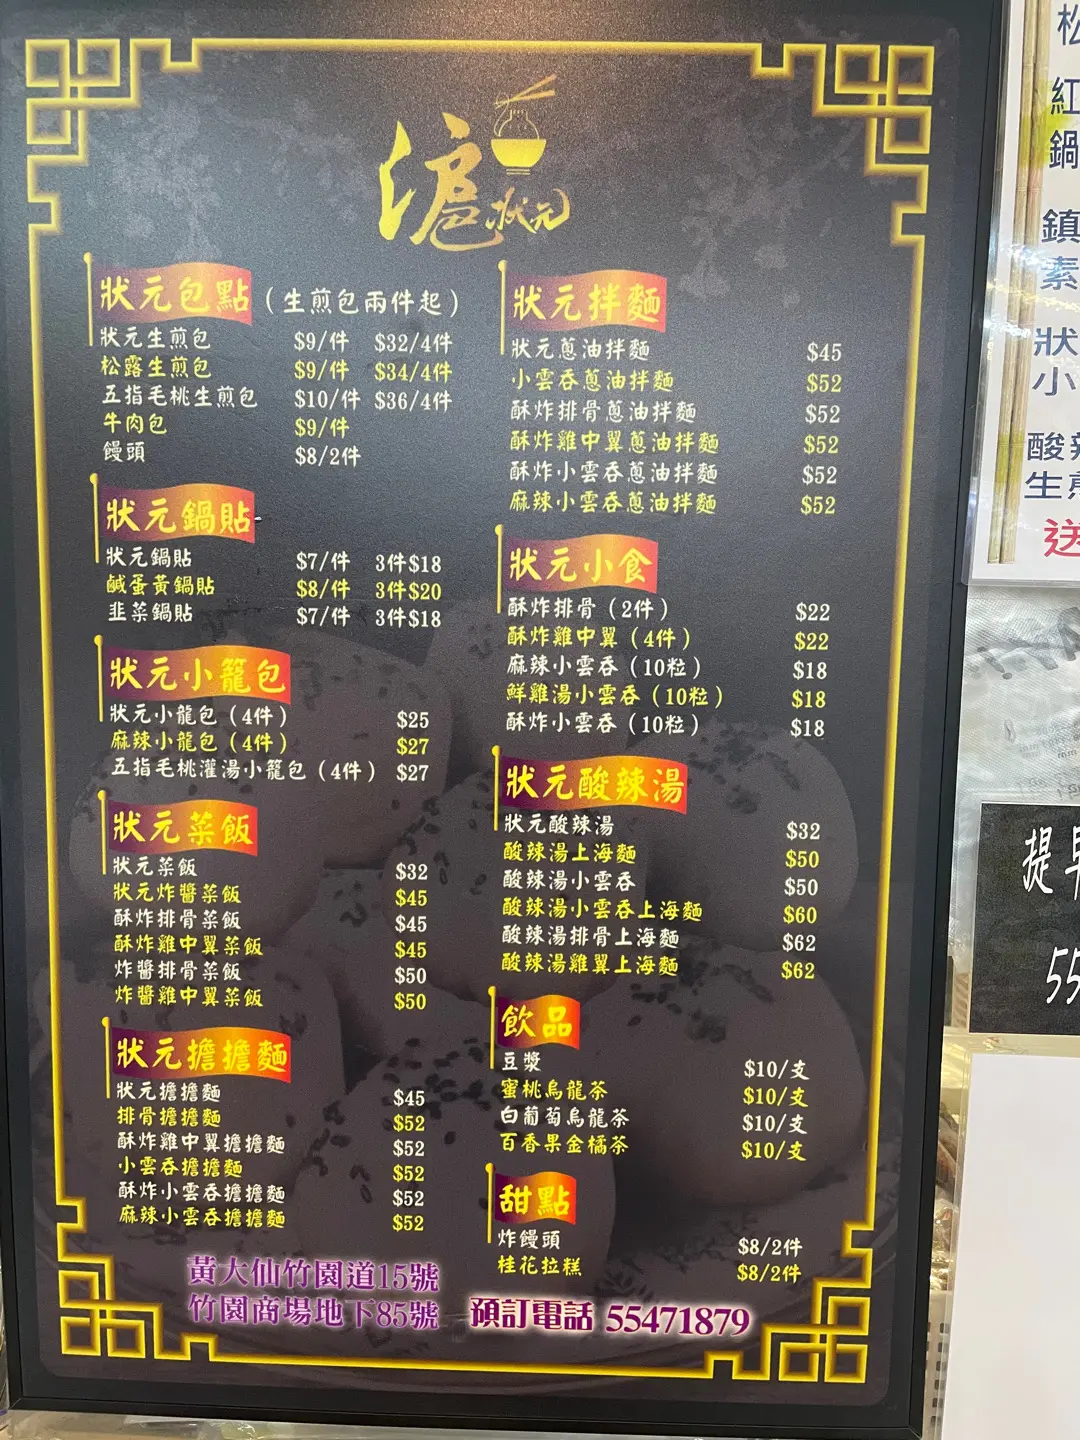 滬狀元
狀元包點（生煎包兩件起）
狀元生煎包 $9/件 $32/4件
松露生煎包 $9/件 $34/4件
五指毛桃生煎包 $10/件 $36/4件
牛肉包 $9/件
饅頭 $8/2件
狀元鍋貼
狀元鍋貼 $7/件 3件$18
鹹蛋黃鍋貼 $8/件 3件$20
韭菜鍋貼 $7/件 3件$18
狀元小籠包
狀元小龍包（4件） $25
麻辣小龍包（4件） $27
五指毛桃灌湯小籠包（4件） $27
狀元菜飯
狀元菜飯 $32
狀元炸醬菜飯 $45
酥炸排骨菜飯 $45
酥炸雞中翼菜飯 $45
炸醬排骨菜飯 $50
炸醬雞中翼菜飯 $50
狀元擔擔麵
狀元擔擔麵 $45
排骨擔擔麵 $52
酥炸雞中翼擔擔麵 $52
小雲吞擔擔麵 $52
酥炸小雲吞擔擔麵 $52
麻辣小雲吞擔擔麵 $52
狀元拌麵
狀元蔥油拌麵 $45
小雲吞蔥油拌麵 $52
酥炸排骨蔥油拌麵 $52
酥炸雞中翼蔥油拌麵 $52
酥炸小雲吞蔥油拌麵 $52
麻辣小雲吞蔥油拌麵 $52
狀元小食
酥炸排骨（2件） $22
酥炸雞中翼（4件） $22
麻辣小雲吞（10粒） $18
鮮雞湯小雲吞（10粒） $18
酥炸小雲吞（10粒） $18
狀元酸辣湯
狀元酸辣湯 $32
酸辣湯上海麵 $50
酸辣湯小雲吞 $50
酸辣湯小雲吞上海麵 $60
酸辣湯排骨上海麵 $62
酸辣湯雞翼上海麵 $62
飲品
豆漿 $10/支
蜜桃烏龍茶 $10/支
白葡萄烏龍茶 $10/支
百香果金橘茶 $10/支
甜點
炸饅頭 $8/2件
桂花拉糕 $8/2件
黃大仙竹園道15號
竹園商場地下85號 預訂電話 55471879
紅
鍋
鎮
素
狀
小
酸辣
生煎
送
提早
55